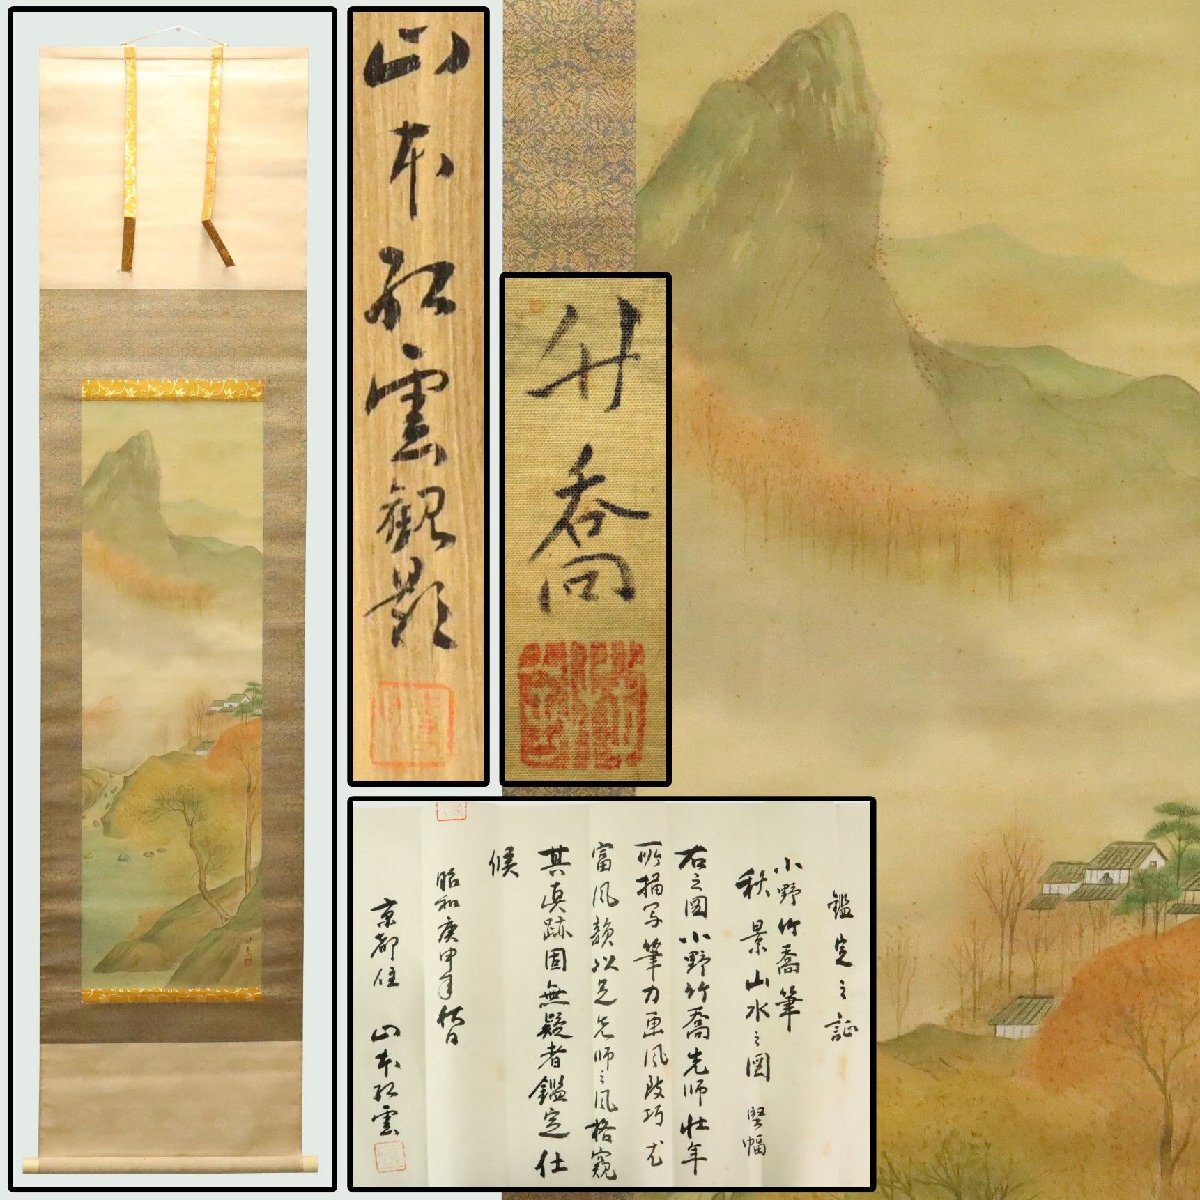 山本紅雲観題
竹喬
鑑定之証
小野竹喬筆
秋景山水之図 竪幅
右之図小野竹喬先師壮年
所描写筆力画風殊巧尤
富風韻以足先師之風格窺
其真跡固無疑者鑑定仕
候
昭和庚申年
京都住 山本紅雲